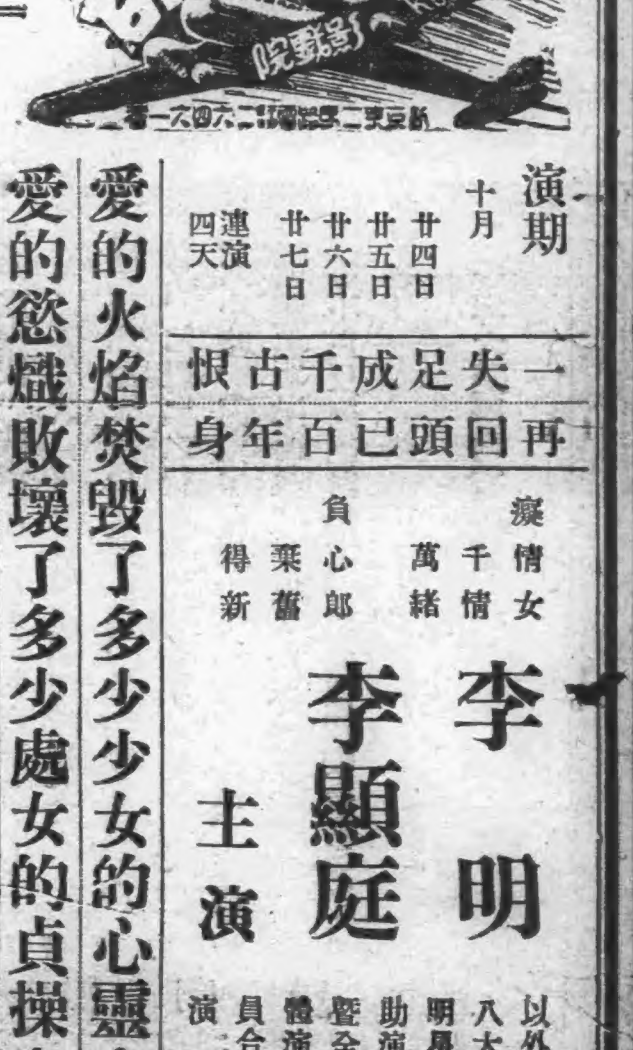 影戲院
演期
十月
廿四日
廿五日
廿六日
廿七日
連演
四天
一失足成千古恨
再回頭已百年身
癡情女
千情
萬緒
李明
負心郎
棄舊
得新
李顯庭
主演
以外
八大
明星
助演
暨全
體演
員合
演
愛的火焰焚毀了多少少女的心靈
愛的慾熾敗壞了多少處女的貞操